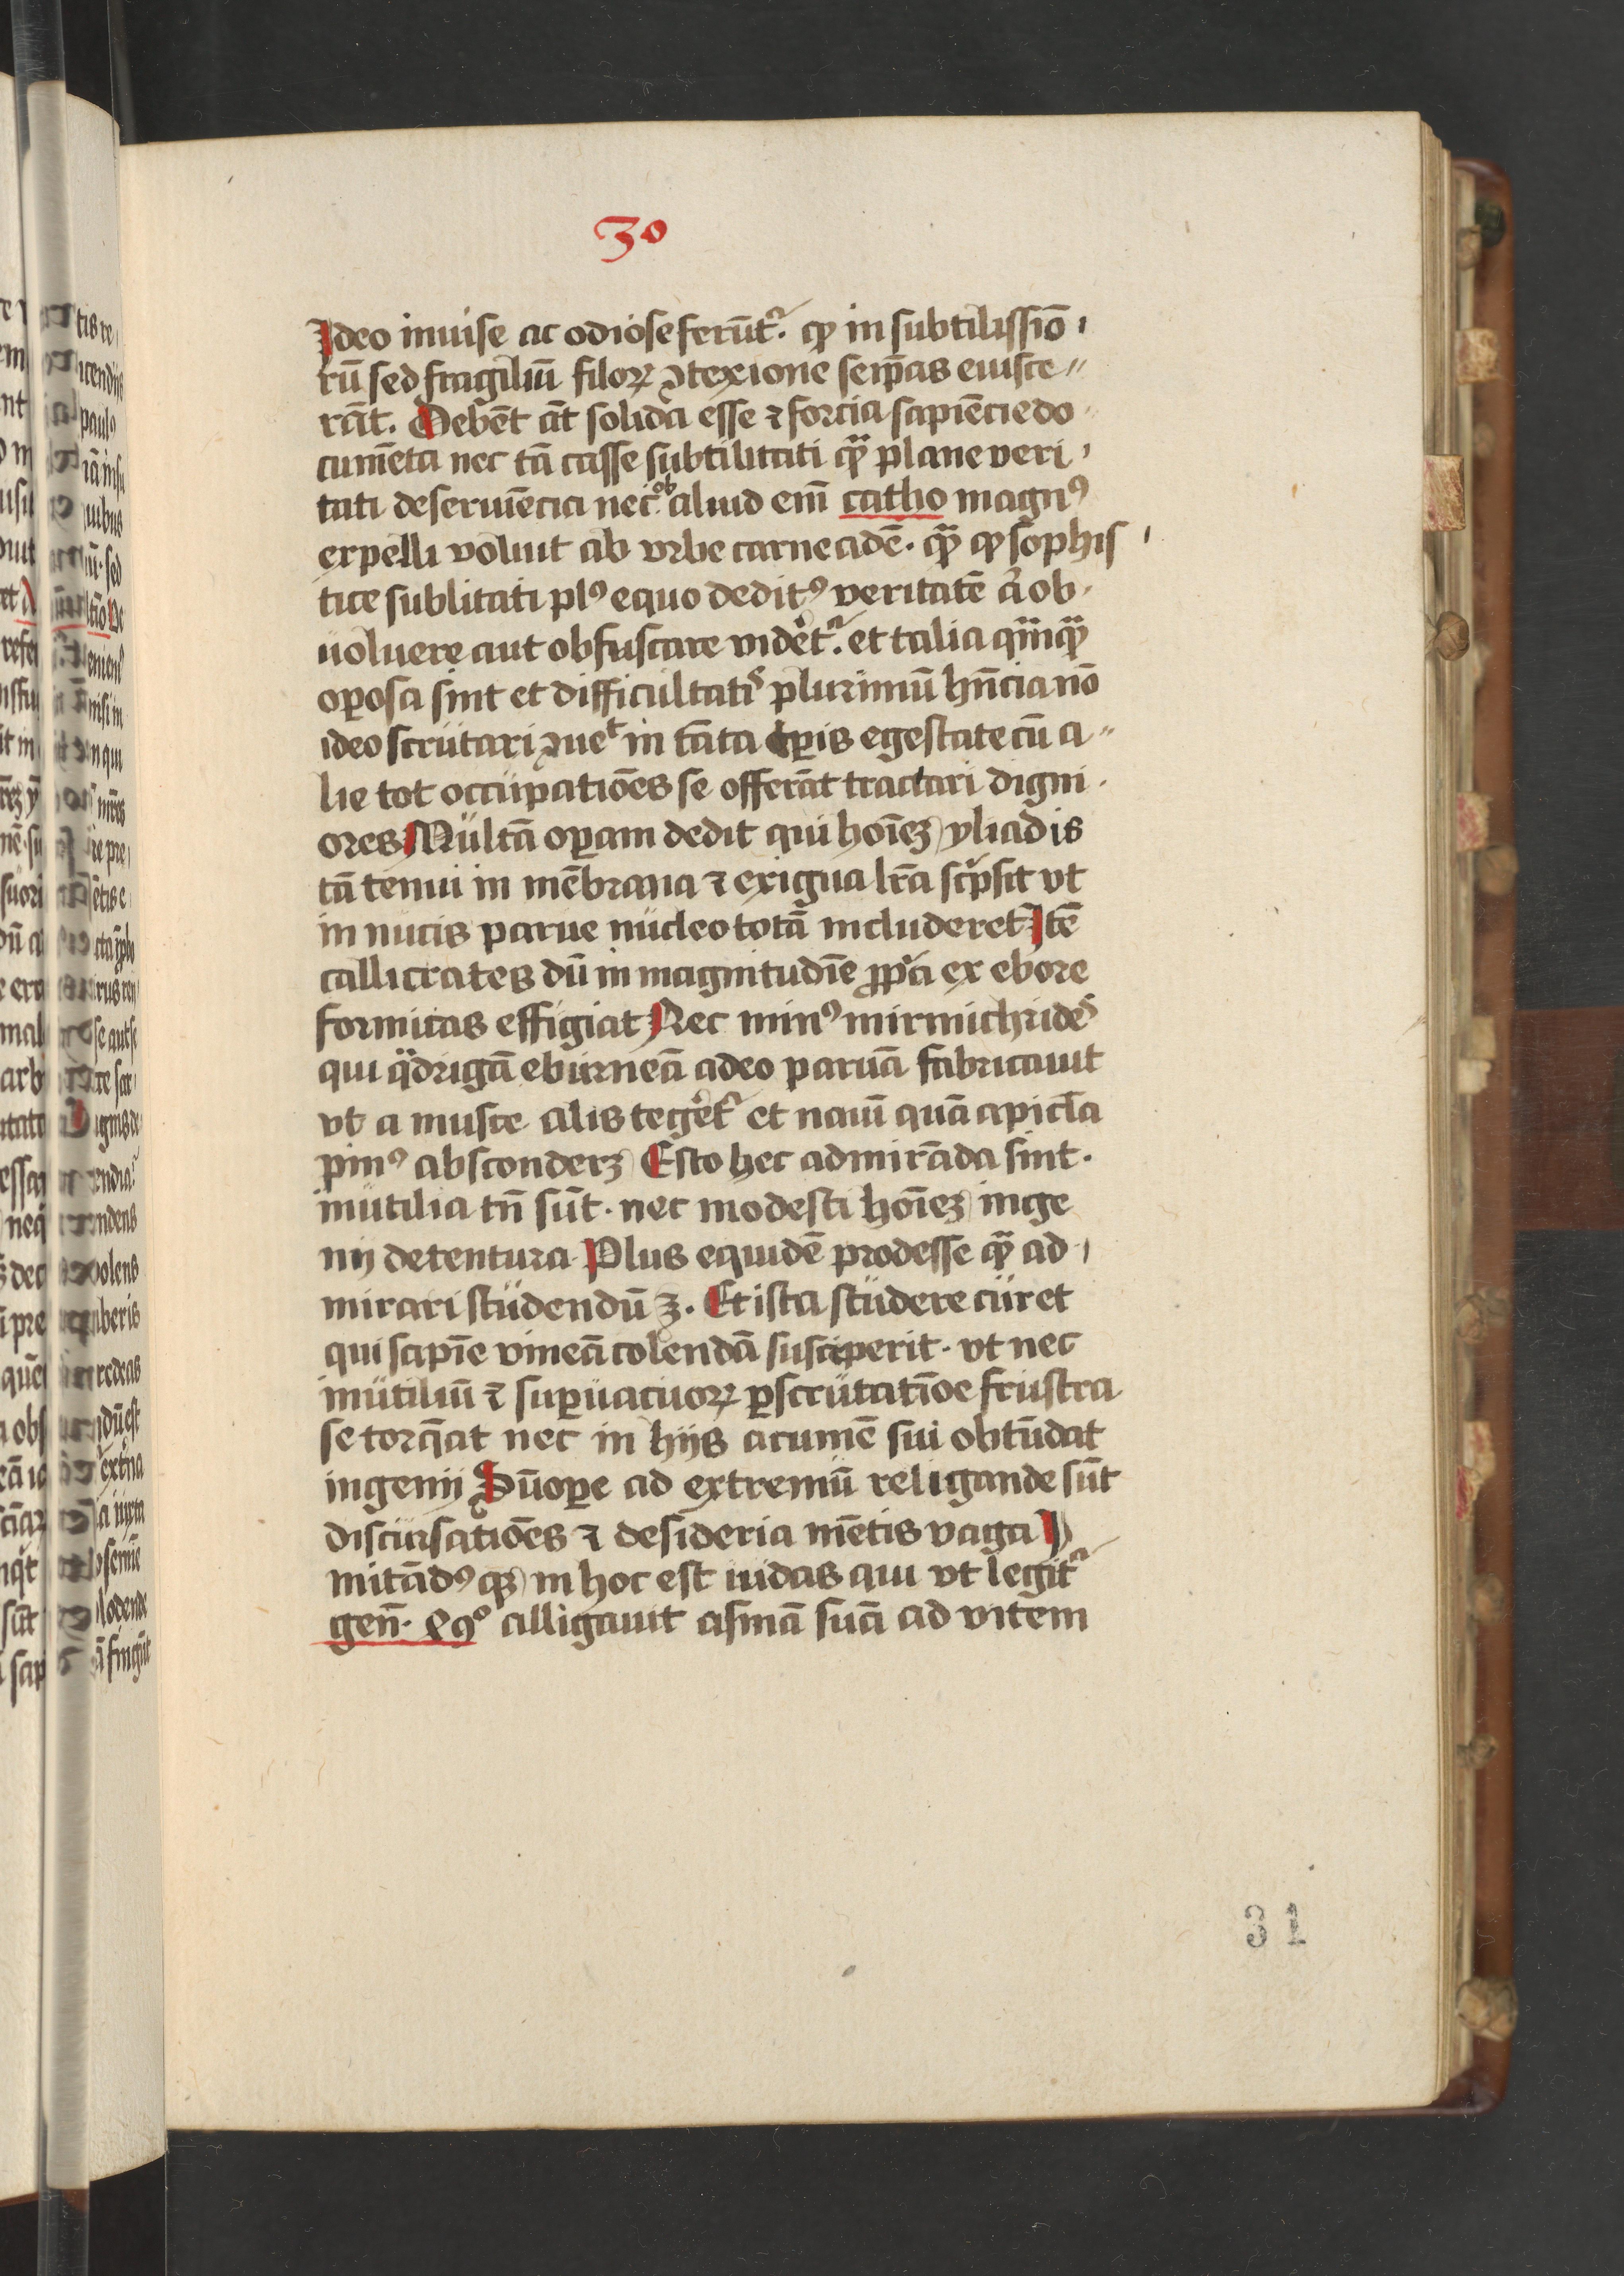 30
Ideo inuise ac odiose ferūt᷑. qꝫ in subtilissio̅
rū sed fragiliū filoꝝ ꝯtexione seip̄as euisce
rāt. Debēt āt solida esse ⁊ forcia sapiēcie do
cumēta nec tā casse subtilitati qᷓꝫ plane veri
tati deseruiēcia nec ob aliud em̄ catho magnꝰ
expelli voluit ab vrbe carneadē. qᷓꝫ qꝫ sophis
tice sublitati plꝰ equo deditꝰ veritatē ob
uoluere aut obfuscare videt᷑. et talia qᷓꝫqᷓꝫ
oꝑosa sint et difficultatis plurimū hn̄cia nō
ideo scrutari ꝯuet in tāta tꝑis egestate cū a
lie tot occupatiōes se offerāt tractari digni
ores Multā oꝑam dedit qui hoīeꝫ yliadis
tā tenui in mēbrana ⁊ exigua lr̄a scͥpsit vt
in nucis parue nucleo totā includeret Itē
callicrates dū in magnitudīe ꝓpͥa ex ebore
formicas effigiat Nec minꝰ mirmichrides
qui qᷓdrigā eburneā adeo paruā fabricauit
vt a musce alis tegeret᷑ et nauī quā apicl̄a
pinꝰ absconderꝫ Esto hec admirāda sint.
inutilia tn̄ sūt. nec modesti hoīeꝫ inge
nij detentura Plus equidē prodesse qᷓꝫ ad
mirari studendū ꝫ. Et ista studere curet
qui sapīe vineā colendā susceperit. vt nec
inutiliū ⁊ suꝑuacuoꝝ ꝑscrutatīoe frustra
se torq̄at nec in hijs acumē sui obtūdat
ingenij Sūoꝑe ad extremū religande sūt
discursatiōes ⁊ desideria mētis vaga I
mitādꝰ qꝫ in hoc est iudas qui vt legit᷑
gen̄. 49º alligauit asinā suā ad vitem
31